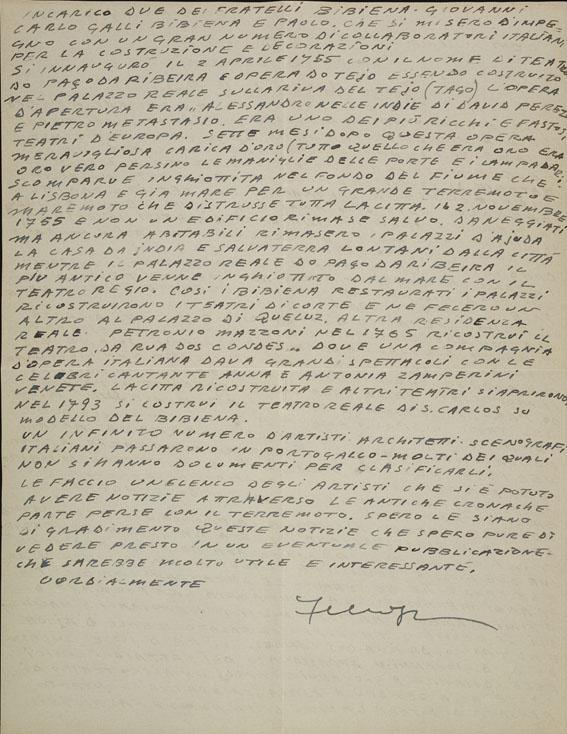 INCARICO DUE DEI FRATELLI BIBIENA - GIOVANNI
CARLO GALLI BIBIENA E PAOLO. CHE SI MISERO D'IMPE-
GNO CON UN GRAN NUMERO DI COLLABORATORI ITALIANI
PER LA COSTRUZIONE E DECORAZIONI
SI INNAUGURÓ IL 2 APRILE 1755 CON IL NOME DI TEATRO
DO PAÇO DA RIBEIRA E OPERA DO TEJO ESSENDO COSTRUITO
NEL PALAZZO REALE SULLA RIVA DEL TEJO (TAGO) L'OPERA
D'APERTURA ERA "ALESSANDRO NELLE INDIE DI DAVID PEREZ
E PIETRO METASTASIO. ERA UNO DEI PIÙ RICCHI E FASTOSI
TEATRI D'EUROPA. SETTE MESI DOPO QUESTA OPERA
MERAVIGLIOSA CARICA D'ORO (TUTTO QUELLO CHE ERA ORO ERA
ORO VERO PERSINO LE MANIGLIE DELLE PORTE E I LAMPADARI
SCOMPARVE INGHIOTTITA NEL FONDO DEL FIUME CHE
A LISBONA E GIA MARE PER UN GRANDE TERREMOTO E
MAREMOTO CHE DISTRUSSE TUTTA LA CITTA. IL 2. NOVEMBRE
1755 E NON UN EDIFICIO RIMASE SALVO. DANEGGIATI
MA ANCORA ABITABILI RIMASERO I PALAZZI D'AJUDA
LA CASA DA INDIA E SALVATERRA LONTANI DALLA CITTÁ
MENTRE IL PALAZZO REALE DO PAÇO DA RIBEIRA IL
PIU ANTICO VENNE INGHIOTTITO DAL MARE CON IL
TEATRO REGIO. COSI I BIBIENA RESTAURATI I PALAZZI
RICOSTRUIRONO I TEATRI DI CORTE E NE FECERO UN
ALTRO AL PALAZZO DI QUELUZ. ALTRA RESIDENCA
REALE. PETRONIO MAZZONI NEL 1765 RICOSTRUI IL
TEATRO "DA RUA DOS CONDES" DOVE UNA COMPAGNIA
D'OPERA ITALIANA DAVA GRANDI SPETTACOLI CON LE
CELEBRI CANTANTE ANNA E ANTONIA ZAMPERINI
VENETE. LA CITTA RICOSTRUITA E ALTRI TEATRI SI APRIRONO
NEL 1793 SI COSTRUI IL TEATRO REALE DI S. CARLOS SU
MODELLO DEL BIBIENA.
UN INFINITO NUMERO D'ARTISTI ARCHITETTI - SCENOGRAFI
ITALIANI PASSARONO IN PORTOGALLO - MOLTI DEI QUALI
NON SI HANNO DOCUMENTI PER CLASIFICARLI.
LE FACCIO UN ELENCO DEGLI ARTISTI CHE SI È POTUTO
AVERE NOTIZIE ATTRAVERSO LE ANTICHE CRONACHE
PARTE PERSE CON IL TERREMOTO. SPERO LE SIANO
DI GRADIMENTO QUESTE NOTIZIE CHE SPERO PURE DI
VEDERE PRESTO IN UN EVENTUALE PUBBLICAZIONE -
CHE SAREBBE MOLTO UTILE E INTERESSANTE.
CORDIALMENTE